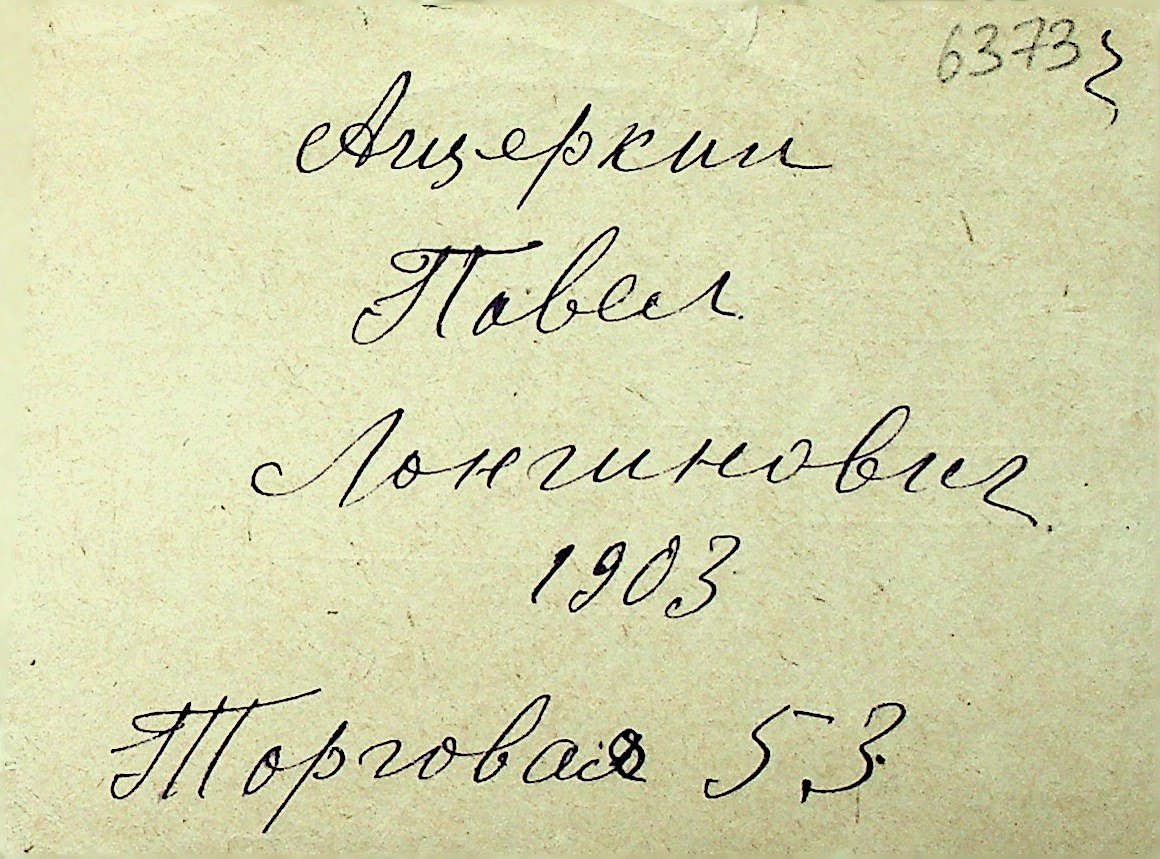 6373
Ащеркин
Павел
Лонгинович
1903
Торговая 53